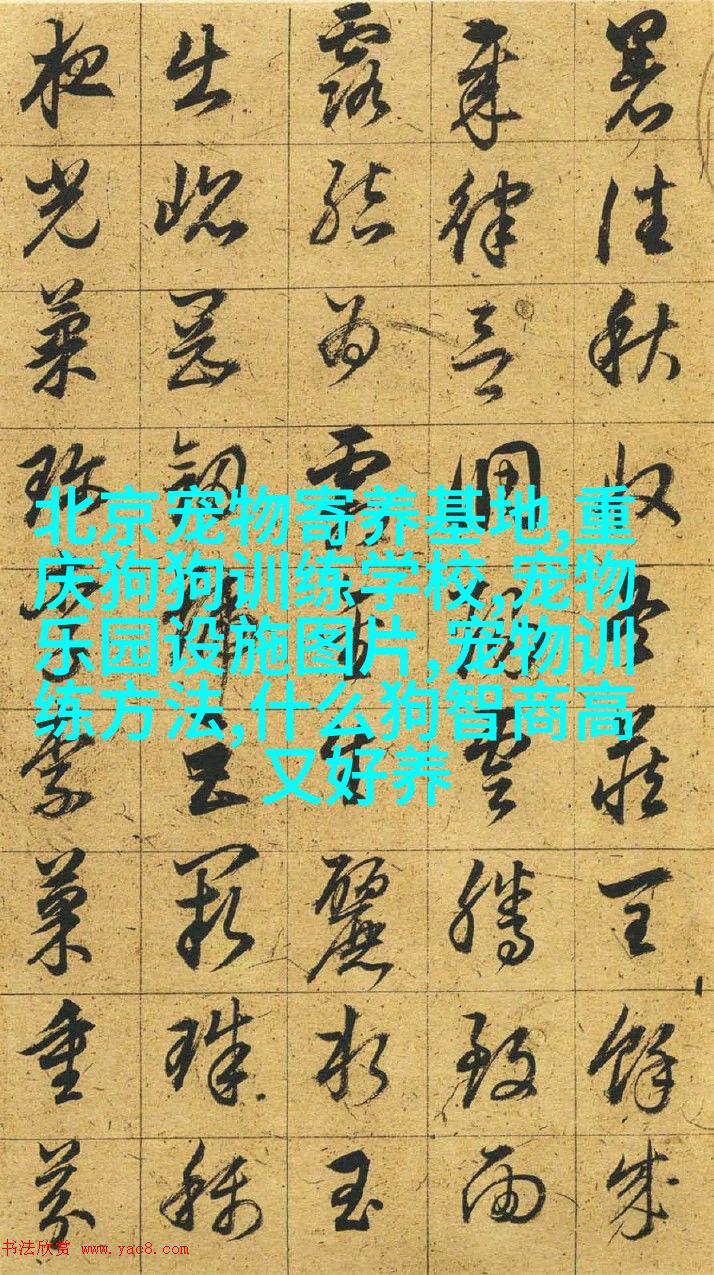 暑往秋收冬藏閏餘成
歲律吕調陽雲騰致雨
露結為霜金生麗水玉
出崐罡劒號巨闕珠稱
夜光菓珍李柰菜重芥
北京宠物寄养基地,重
庆狗狗训练学校,宠物
乐园设施图片,宠物训
练方法,什么狗智商高
又好养
书法欣赏 www.yac8.com